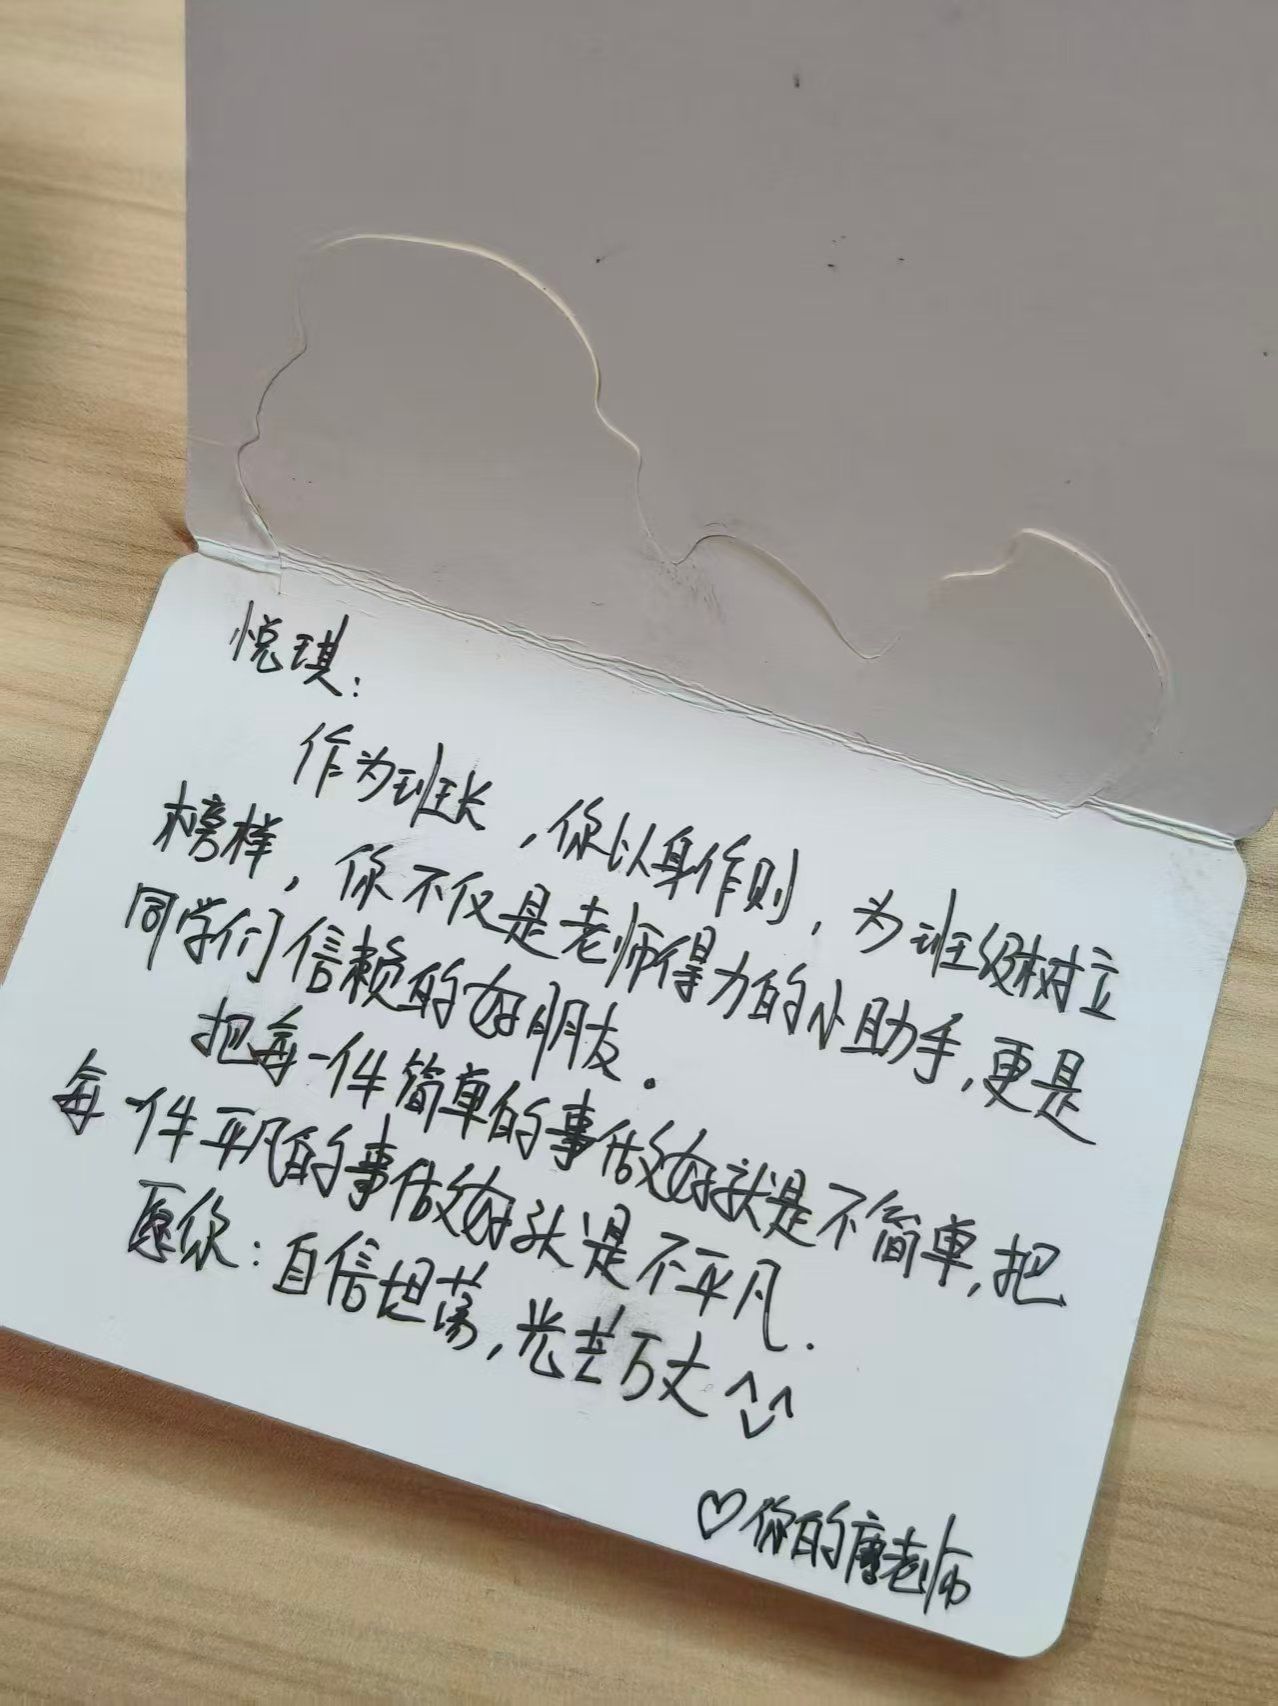 悦琪：
作为班长，你以身作则，为班级树立
榜样，你不仅是老师得力的小助手，更是
同学们信赖的好朋友。
把每一件简单的事做好就是不简单，把
每一件平凡的事做好就是不平凡.
愿你：自信坦荡，光芒万丈^^
♡你的唐老师